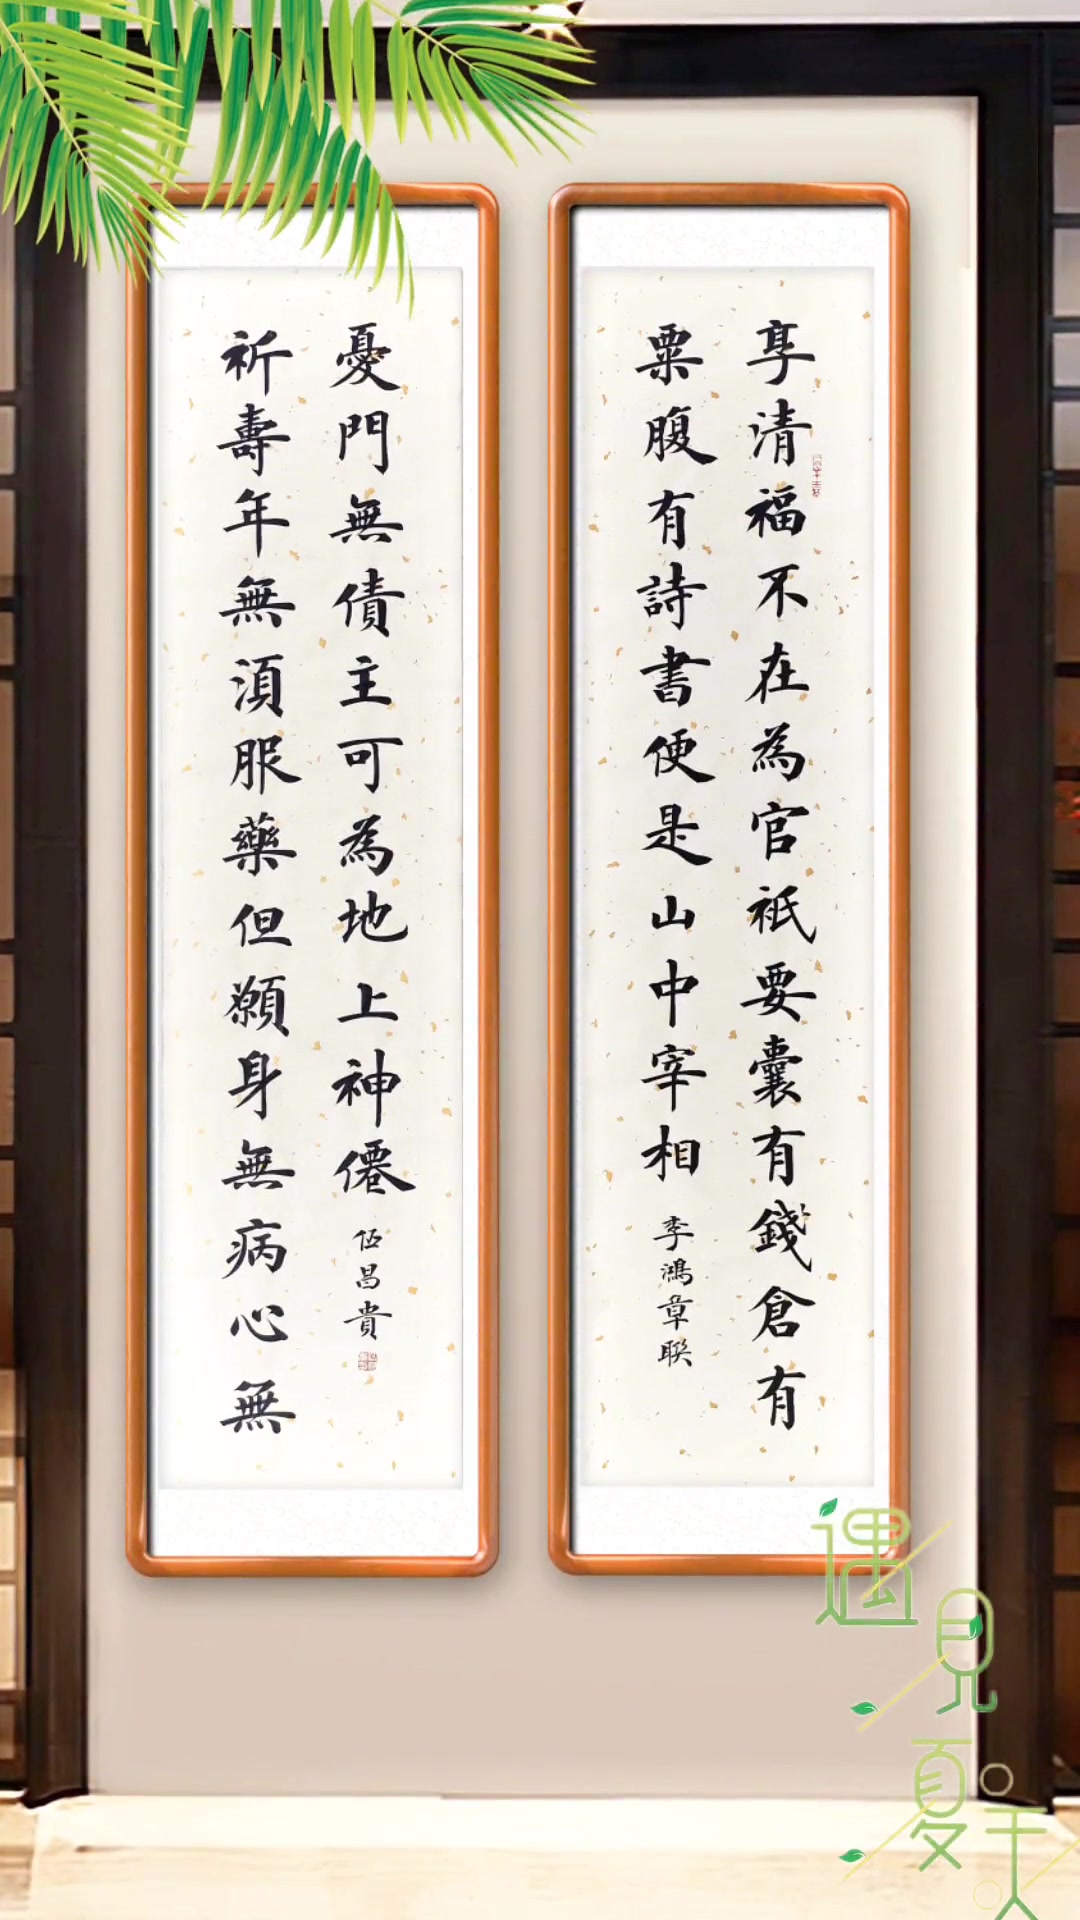 享清福不在為官祇要囊有錢倉有
粟腹有詩書便是山中宰相
李鴻章聯
祈壽年無湏服藥但願身無病心無
憂門無債主可為地上神僊
伍昌貴
遇見夏天